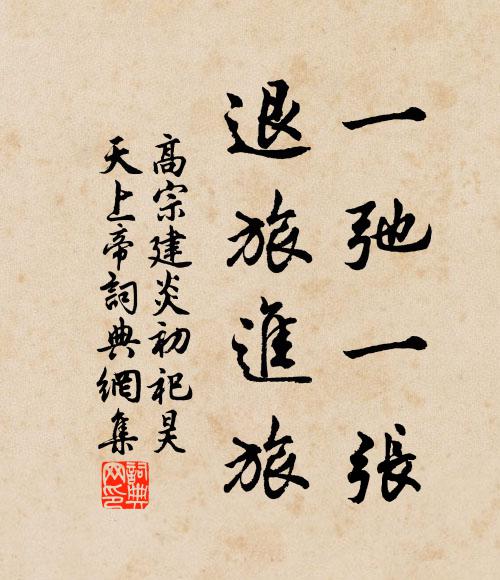 一弛一張
退旅進旅
高宗建炎初祀昊
天上帝詞典網集
詞典
网印